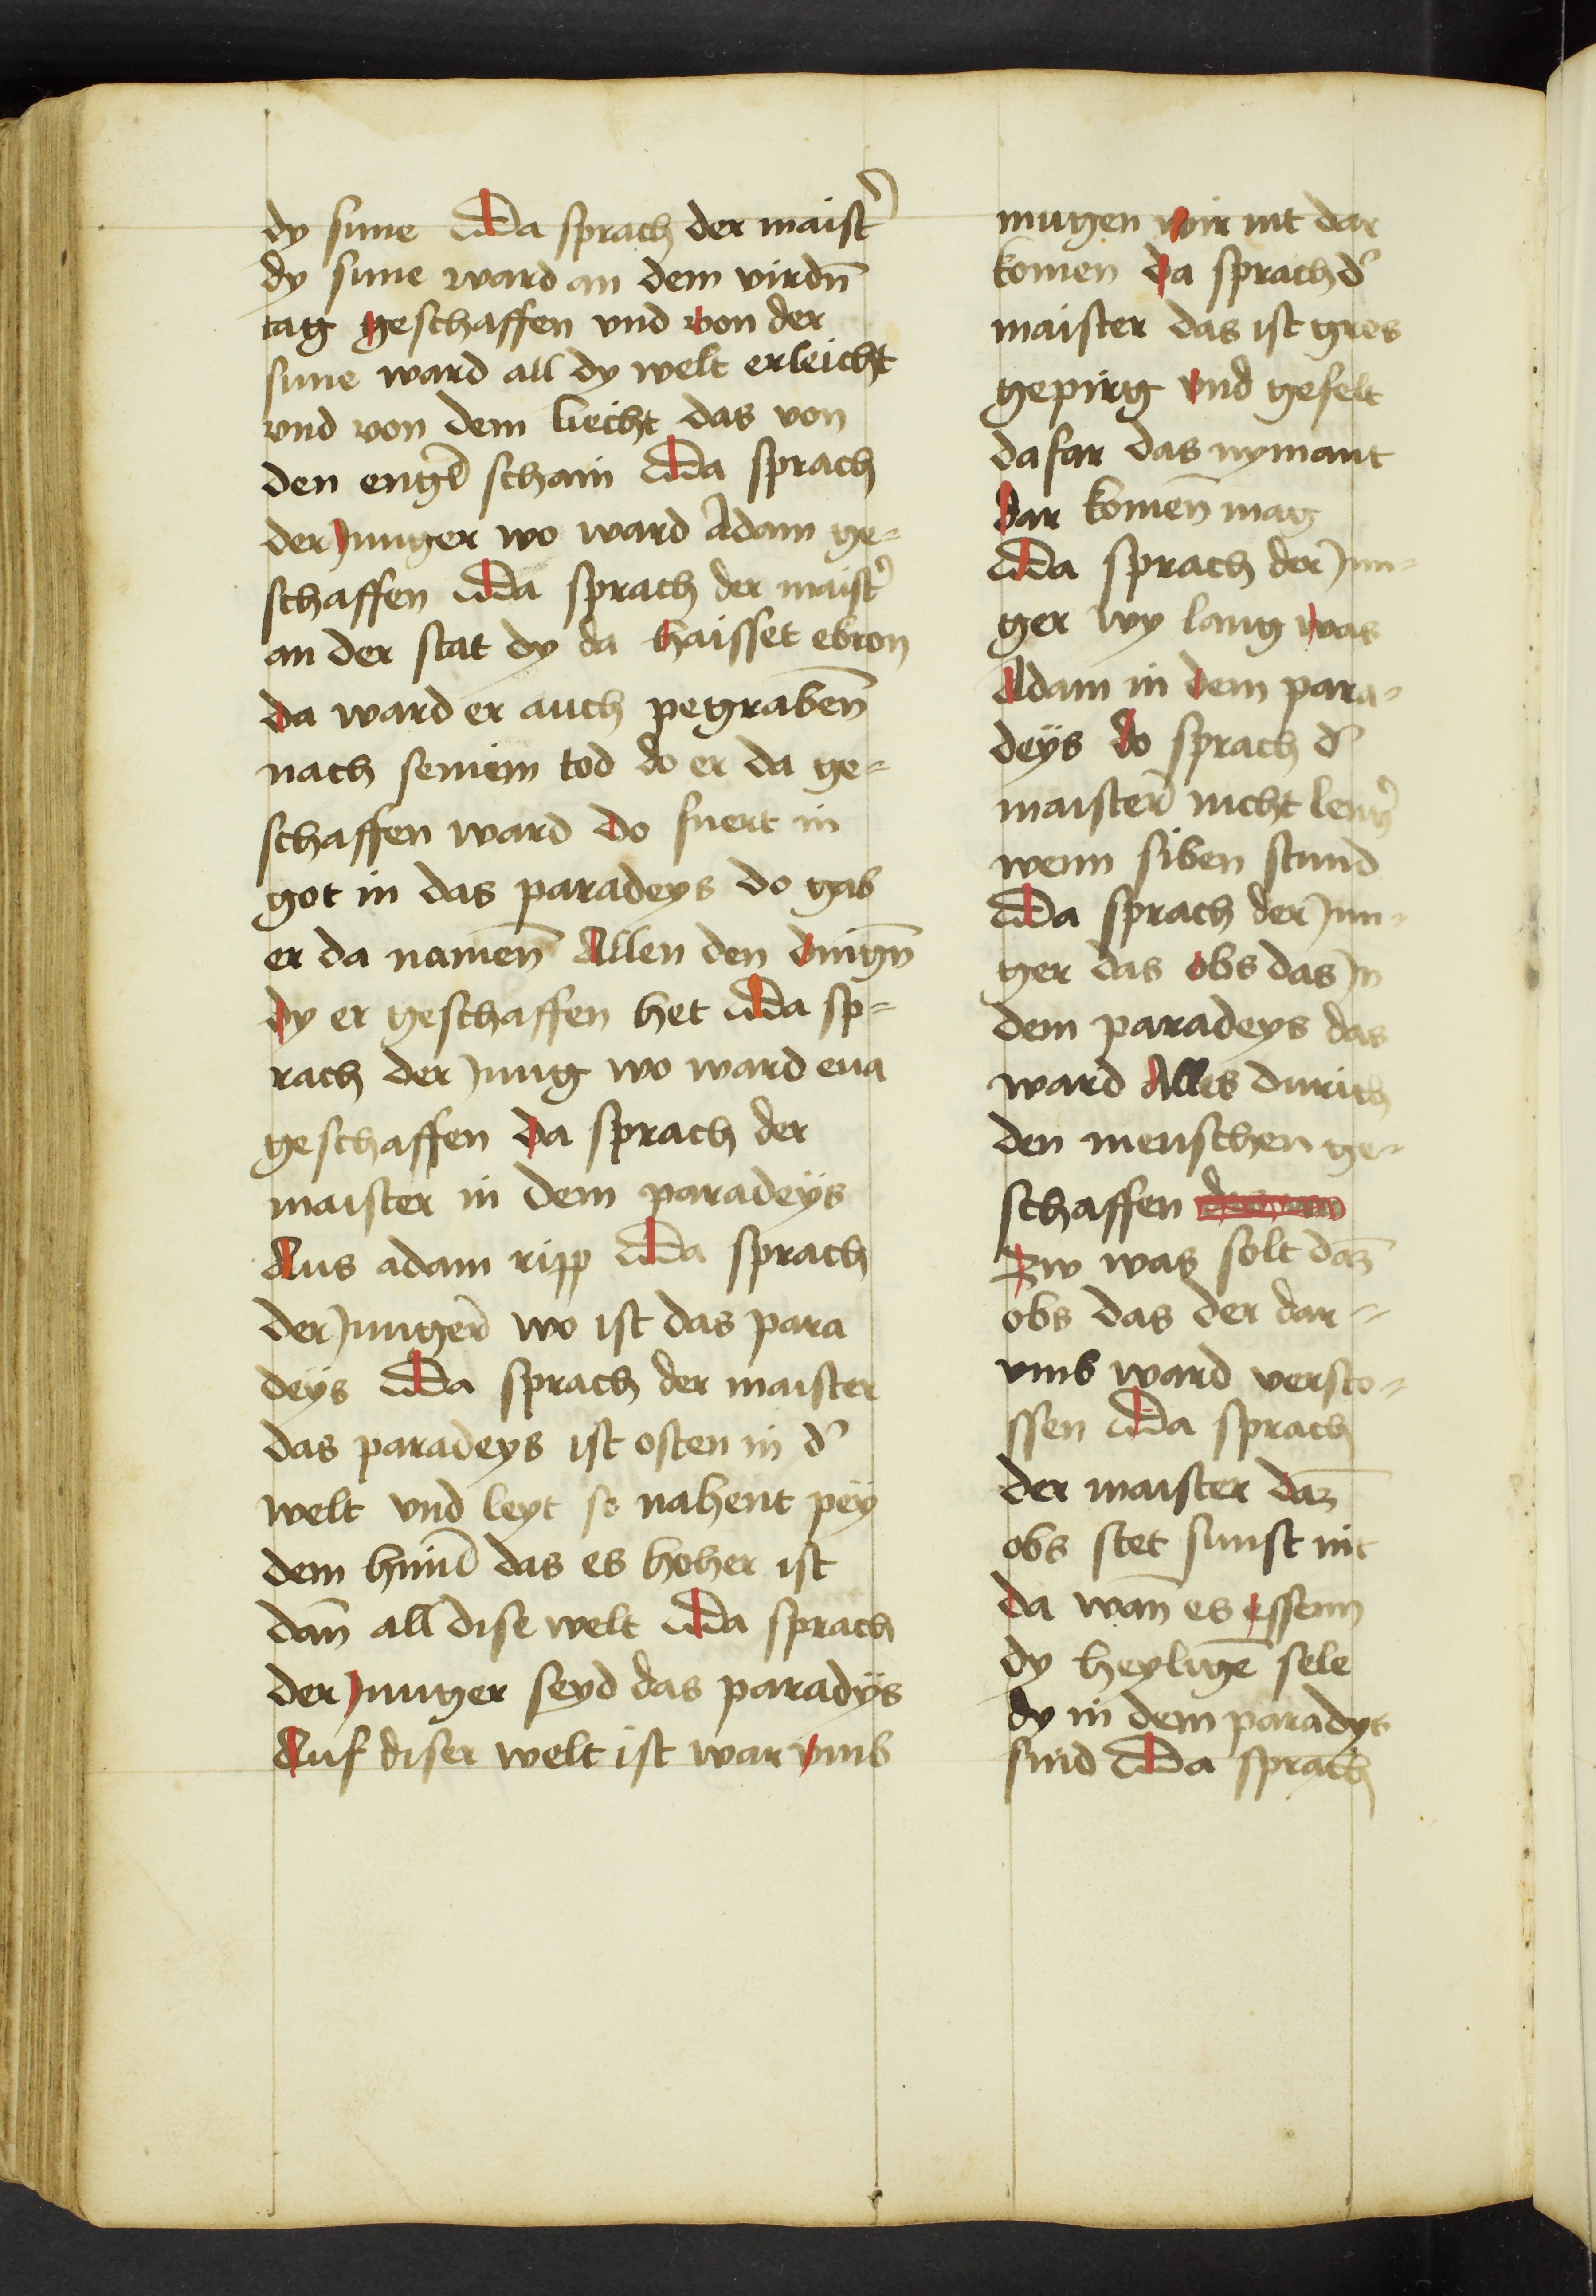 dy sune Da sprach der maist᾽
dy sune ward an dem virdn̄
tag geschaffen vnd von der
sune ward all dy welt erleicht
vnd von dem liecht das von
den engl̄ schain Da sprach
der Junger wo ward Adam ge⸗
schaffen Da sprach der maist᾽
an der stat dy da haisset ebron
da ward er auch pegraben̄
nach seniem tod do er da ge⸗
schaffen ward do fuert in
got in das paradeys do gab
er da namen̄ Allen den dingn̄
dy er geschaffen het Da sp⸗
rach der Jung wo ward eua
geschaffen Da sprach der
maister in dem paradeÿs
Aus adam ripp Da sprach
der Junger̄ wo ist das para
deÿs Da sprach der maister
das paradeys ist osten in d᾽
welt vnd leyt so nahent peÿ
dem himl̄ das es hoher ist
dan̄ all dise welt Da sprach
der Junger seyd das paradÿs
Auf diser welt ist war vmb
mugen wir nit dar
komen da sprach d᾽
maister das ist gros
gepirg vnd gefelt
dafar das nymant
dar komen̄ mag
Da sprach der Jun⸗
ger wy lang was
Adam in dem para⸗
deÿs do sprach d᾽
maister̄ nicht leng᾽
wenn siben stund
Da sprach der Jun⸗
ger das obs das Jn
dem paradeys das
ward Alles durich
den menschen ge⸗
schaffen
Zw was solt daz̄
obs das der dar⸗
vmb ward versto⸗
ssen Da sprach
der maister daz̄
obs stet sunst nit
da wan̄ es essenn
dy heyligē sele
dy in dem paradys
sind Da sprach